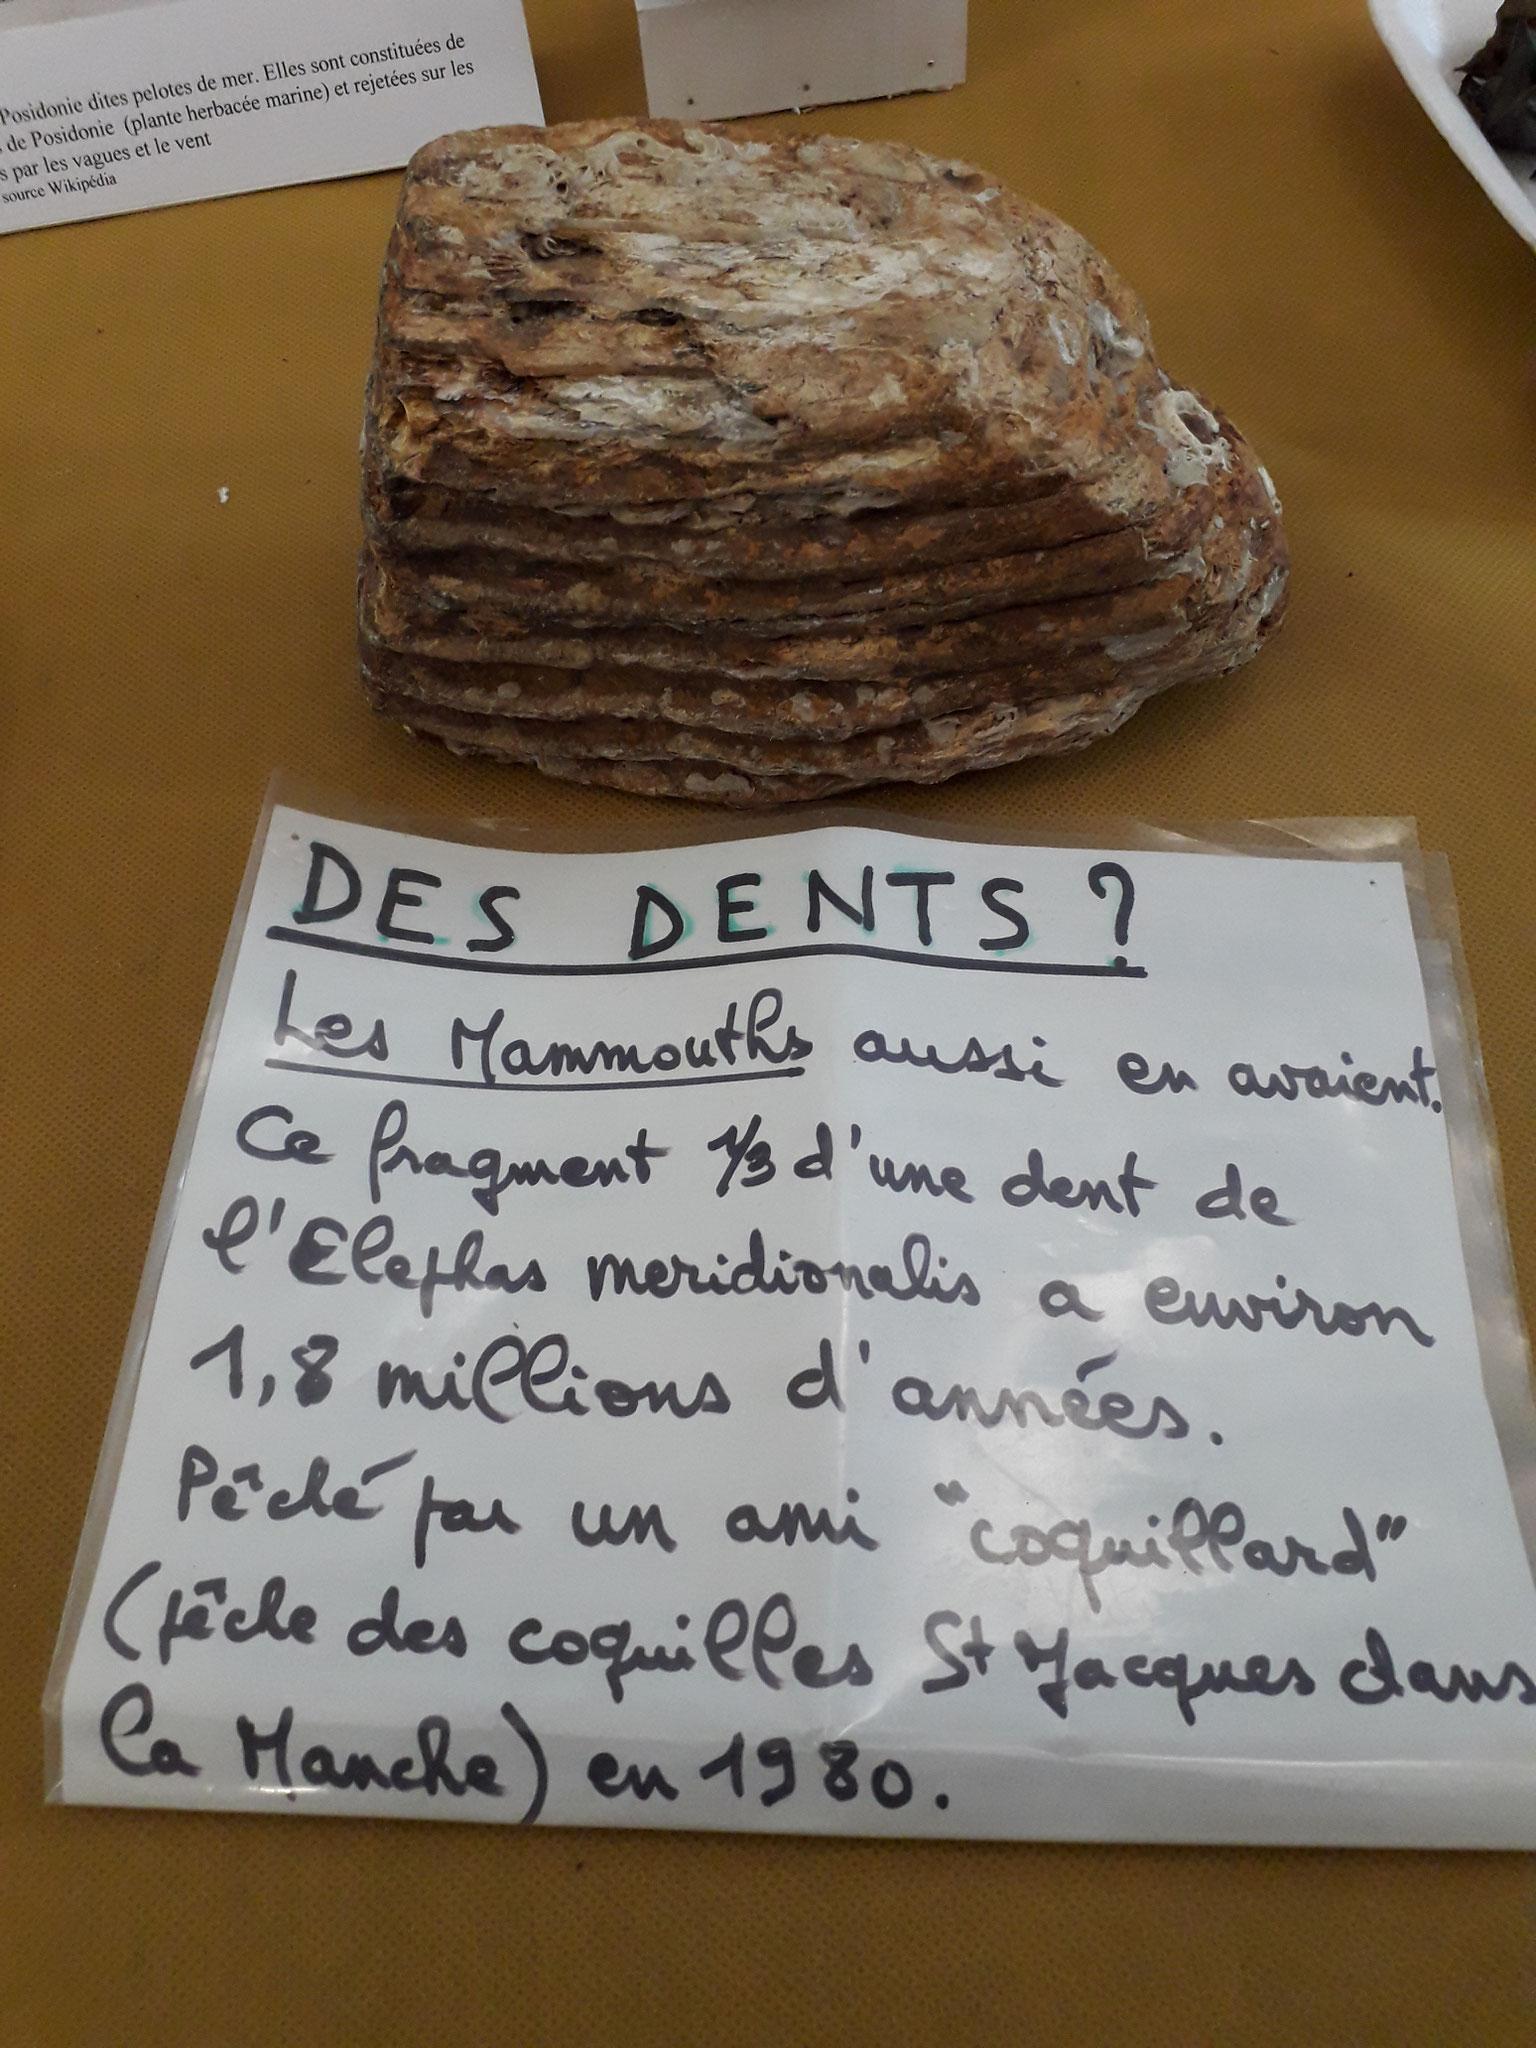 Posidonie dites pelotes de mer. Elles sont constituées de
de Posidonie (plante herbacée marine) et rejetées sur les
s par les vagues et le vent
source Wikipédia
DES DENTS ?
Les Mammouths aussi en avaient.
Ce fragment 1/3 d'une dent de
l'Elephas meridionalis a environ
1,8 millions d'années.
Pêché par un ami "coquillard"
(pêche des coquilles St Jacques dans
la Manche) en 1980.